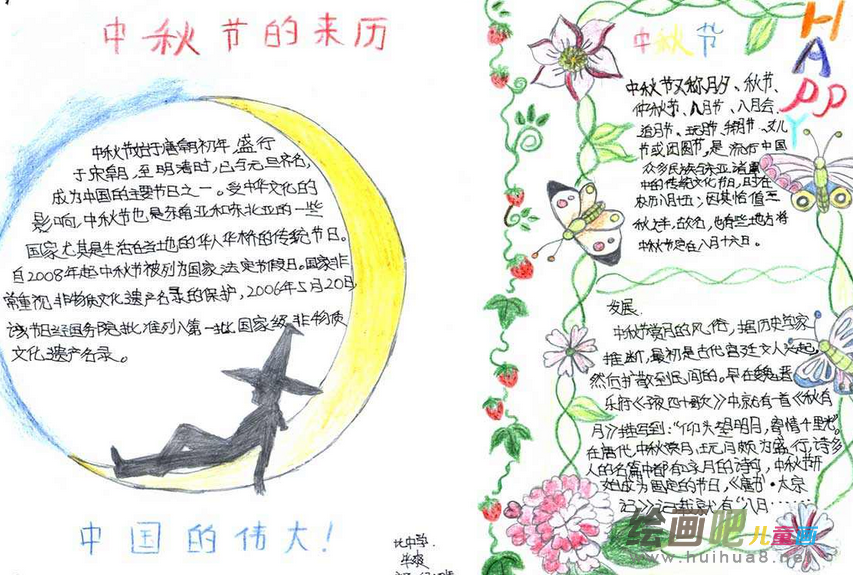 中秋节的来历
中秋节始于唐朝初年，盛行
于宋朝，至明清时，已与元旦齐名，
成为中国的主要节日之一。受中华文化的
影响，中秋节也是东南亚和东北亚的一些
国家尤其是生活在当地的华人华桥的传统节日。
自2008年起中秋节被列为国家法定节假日。国家非
常重视非物质文化遗产名录的保护，2006年5月20日
该节日经国务院批准列入第一批国家级非物质
文化遗产名录。
中国的伟大！
HAPPY
中秋节
中秋节又称月夕、秋节、
仲秋节、八月节、八月会、
追月节、玩月节、拜月节、女儿
节或团圆节，是流行中国
众多民族与东亚诸国
中的传统文化节日，时在
农历八月十五；因其恰值三
秋之半，故名，也有些地方将
中秋节定在八月十六日。
发展：
中秋节赏月的风俗，据历史学家
推断，最初是古代宫廷文人兴起，
然后扩散到民间的。早在魏晋
乐府《子夜四十歌》中就有一首《秋有
月》描写到：“仰头望明月，寄情千里光”。
在唐代，中秋赏月、玩月颇为盛行，诗多
人的名篇中都有咏月的诗句，中秋节开
始成为固定的节日，《唐书·太宗
记》记载有“八月……
绘画吧儿童画
www.huihua8.net